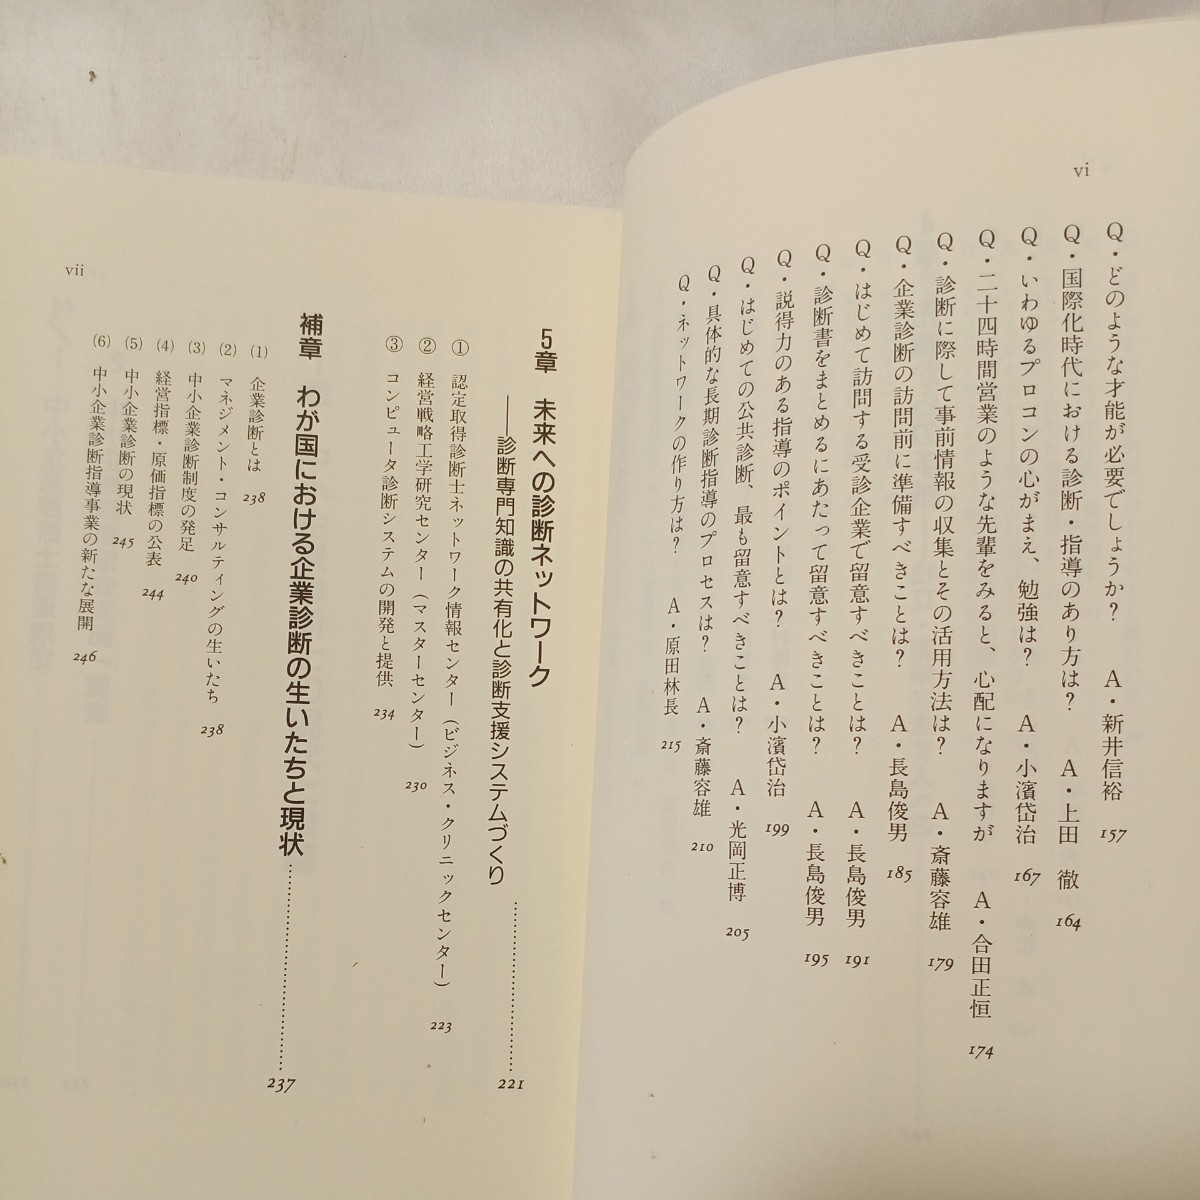 vi
Q・どのような才能が必要でしょうか？　A・新井信裕　157
Q・国際化時代における診断・指導のあり方は？　A・上田　徹　164
Q・いわゆるプロコンの心がまえ、勉強は？　A・小濱岱治　167
Q・二十四時間営業のような先輩をみると、心配になりますが　A・合田正恒　174
Q・診断に際して事前情報の収集とその活用方法は？　A・斎藤容雄　179
Q・企業診断の訪問前に準備すべきことは？　A・長島俊男　185
Q・はじめて訪問する受診企業で留意すべきことは？　A・長島俊男　191
Q・診断書をまとめるにあたって留意すべきことは？　A・長島俊男　195
Q・説得力のある指導のポイントとは？　A・小濱岱治　199
Q・はじめての公共診断、最も留意すべきことは？　A・光岡正博　205
Q・具体的な長期診断指導のプロセスは？　A・斎藤容雄　210
Q・ネットワークの作り方は？　A・原田林長　215
5章　未来への診断ネットワーク
――診断専門知識の共有化と診断支援システムづくり…………221
①　認定取得診断士ネットワーク情報センター（ビジネス・クリニックセンター）　223
②　経営戦略工学研究センター（マスターセンター）　230
③　コンピュータ診断システムの開発と提供　234
補章　わが国における企業診断の生いたちと現状…………237
(1)　企業診断とは　238
(2)　マネジメント・コンサルティングの生いたち　238
(3)　中小企業診断制度の発足　240
(4)　経営指標・原価指標の公表　244
(5)　中小企業診断の現状　245
(6)　中小企業診断指導事業の新たな展開　246
vii